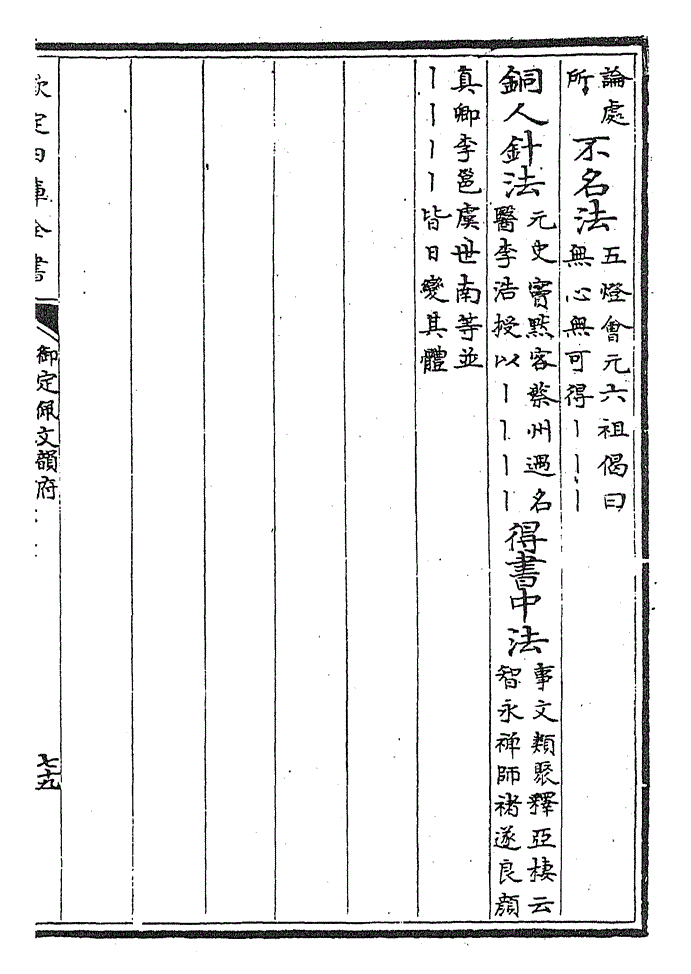 論處
所　不名法　五燈會元六祖偈曰
無心無可得｜｜｜
銅人針法　元史竇默客蔡州遇名
醫李浩授以｜｜｜｜　得書中法　事文類聚釋亞棲云
智永禪師禇遂良顔
真卿李邕虞世南等並
｜｜｜｜皆日變其體
欽定四庫全書
御定佩文韻府
七十九